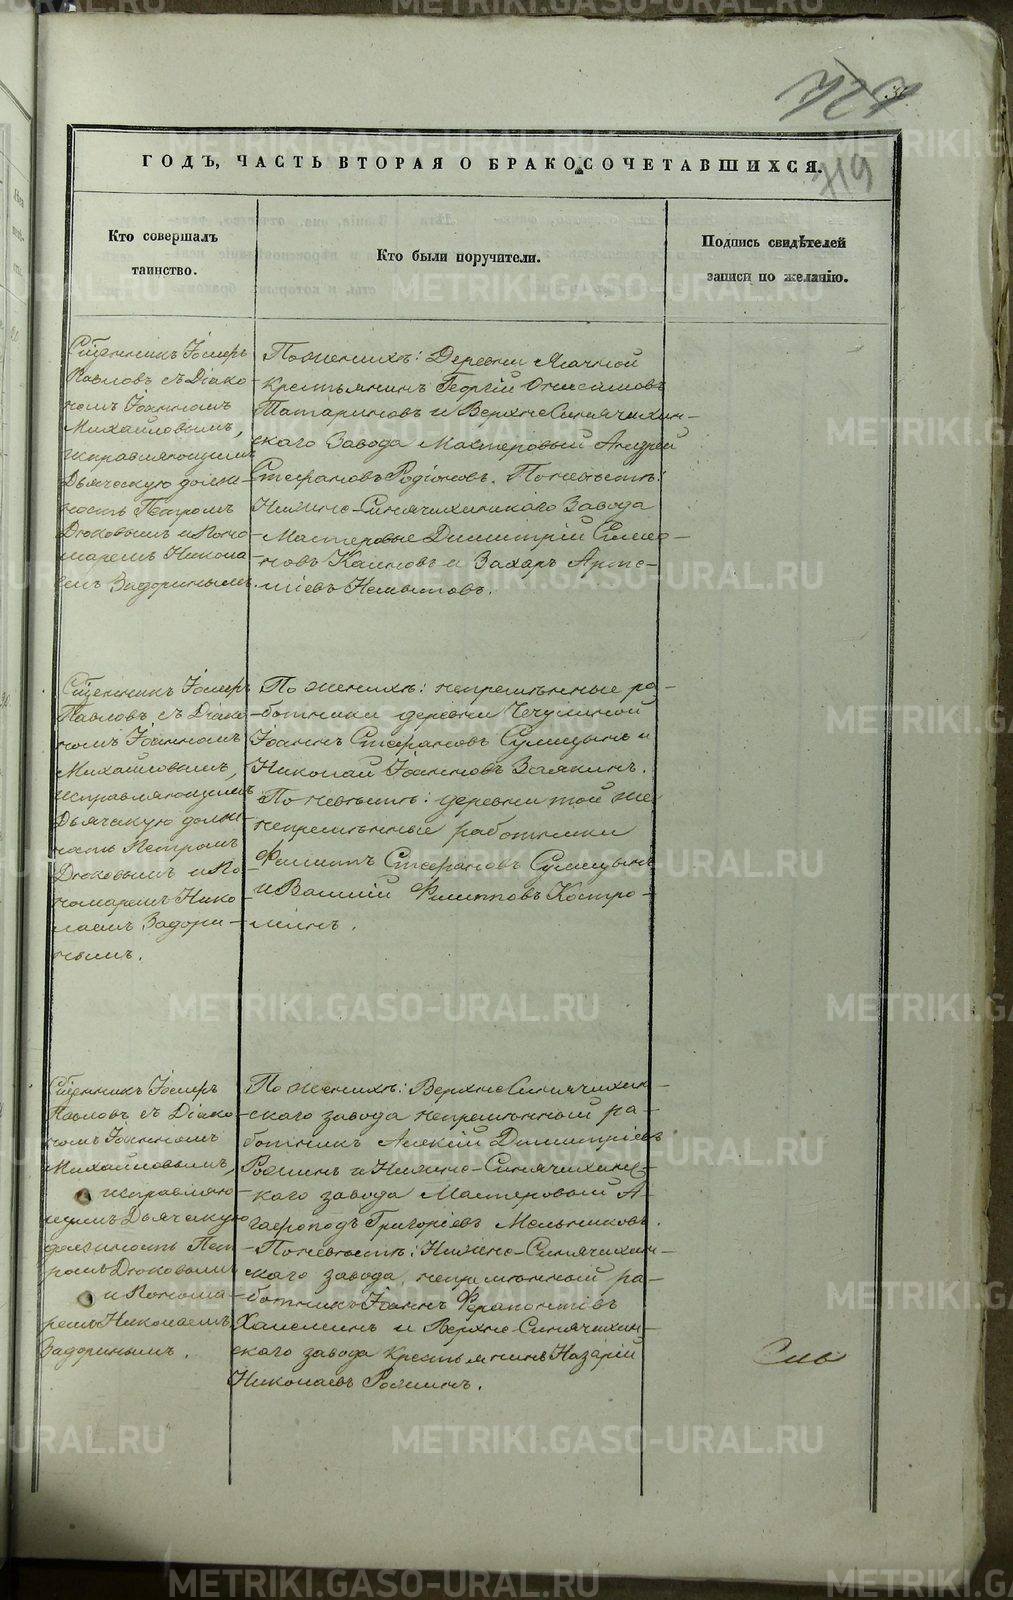 719
ГОДЪ, ЧАСТЬ ВТОРАЯ О БРАКОСОЧЕТАВШИХСЯ.
Кто совершалъ
таинство.
Кто были поручители.
Подпись свидѣтелей
записи по желанію.
Сщенникъ Іосифъ
Павловъ съ Діако-
номъ Іоанномъ
Михайловымъ,
исправляющимъ
Дьяческую долж-
ность Петромъ
Дюковымъ и Поно-
маремъ Никола-
емъ Задоринымъ.
По женихѣ: Деревни Ялачной
крестьянинъ Георгій Онисимовъ
Татариновъ и Верхне Синячихин-
скаго Завода Мастеровый Андрей
Стефановъ Родіоновъ. По невѣстѣ:
Нижне-Синячихинскаго Завода
Мастеровые Димитрій Симео-
новъ Каиновъ и Захаръ Арте-
міевъ Немытовъ.
Сщенникъ Іосифъ
Павловъ съ Діако-
номъ Іоанномъ
Михайловымъ,
исправляющимъ
Дьяческую долж-
ность Петромъ
Дюковымъ и По-
номаремъ Нико-
лаемъ Задори-
нымъ.
По женихѣ: непремѣнные ра-
ботники деревни Чечулиной
Іоаннъ Стефановъ Сумицынъ и
Николай Іоанновъ Заякинъ.
По невѣстѣ: деревни той же
непремѣнные работники
Филиппъ Стефановъ Сумицынъ
и Василій Филипповъ Костро-
минъ.
Сщенникъ Іосифъ
Павловъ съ Діако-
номъ Іоанномъ
Михайловымъ,
исправляю-
щимъ Дьяческую
должность Пет-
ромъ Дюковымъ
и Понома-
ремъ Николаемъ
Задоринымъ.
По женихѣ: Верхне Синячихин-
скаго завода непремѣнный ра-
ботникъ Алексій Димитріевъ
Рожинъ и Нижне-Синячихинс-
каго завода Мастеровый А-
гафоподъ Григоріевъ Мельниковъ.
По невѣстѣ: Нижне-Синячихин-
скаго завода непремѣнный ра-
ботникъ Іоаннъ Ферапонтовъ
Халеминъ и Верхне-Синячихин-
скаго завода крестьянинъ Назарій
Николаевъ Рожинъ.
METRIKI.GASO-URAL.RU